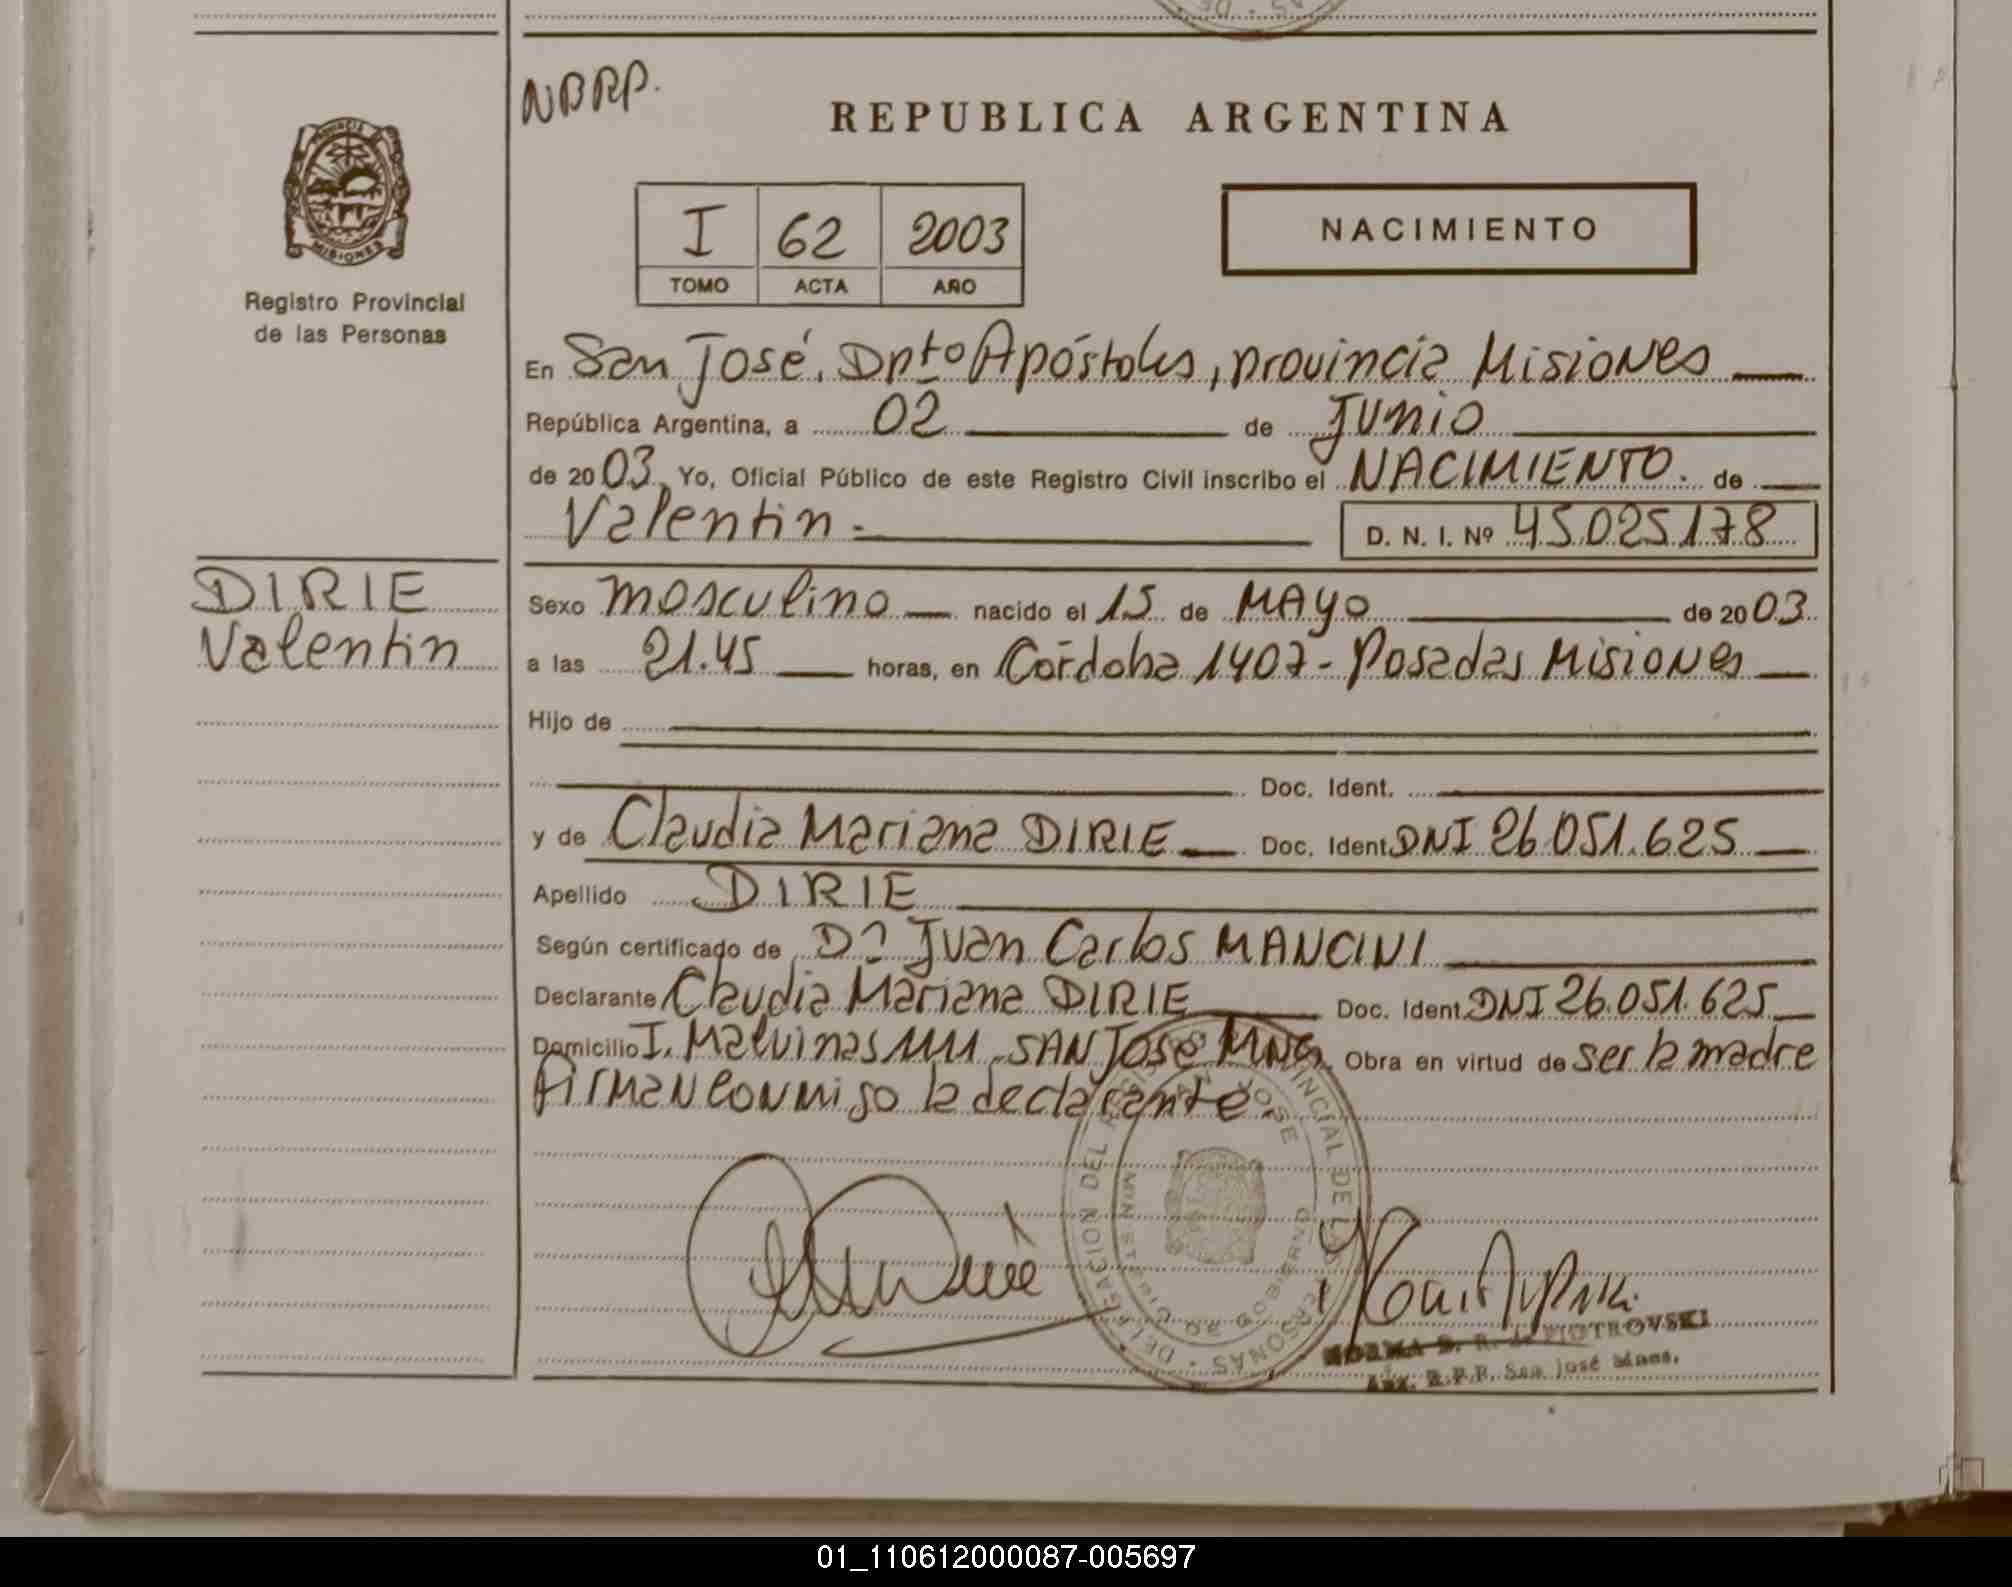 NBRP.
REPUBLICA ARGENTINA
I 62 2003
TOMO ACTA AÑO
NACIMIENTO
MISIONES
Registro Provincial
de las Personas
En San José, Dpto Apóstoles, provincia Misiones
República Argentina, a 02 de Junio
de 2003 Yo, Oficial Público de este Registro Civil inscribo el NACIMIENTO. de
Valentin.- D. N. I. Nº 45.025.178
DIRIE
Valentin
Sexo masculino nacido el 15 de MAYO de 2003
a las 21.45 horas, en Córdoba 1407 - Posadas Misiones
Hijo de
Doc. Ident.
y de Claudia Mariana DIRIE Doc. Ident. DNI 26.051.625
Apellido DIRIE
Según certificado de Dr Juan Carlos MANCINI
Declarante Claudia Mariana DIRIE Doc. Ident. DNI 26.051.625
Domicilio I. Malvinas 1111 SAN José MNES. Obra en virtud de ser la madre
Firman conmigo la declarante.
DELEGACION DEL REGISTRO PROVINCIAL DE LAS PERSONAS
SAN JOSE
MINISTERIO DE GOBIERNO
NORMA B. R. de PIOTROVSKI
Aux. R.P.P. San José Mnes.
01_110612000087-005697